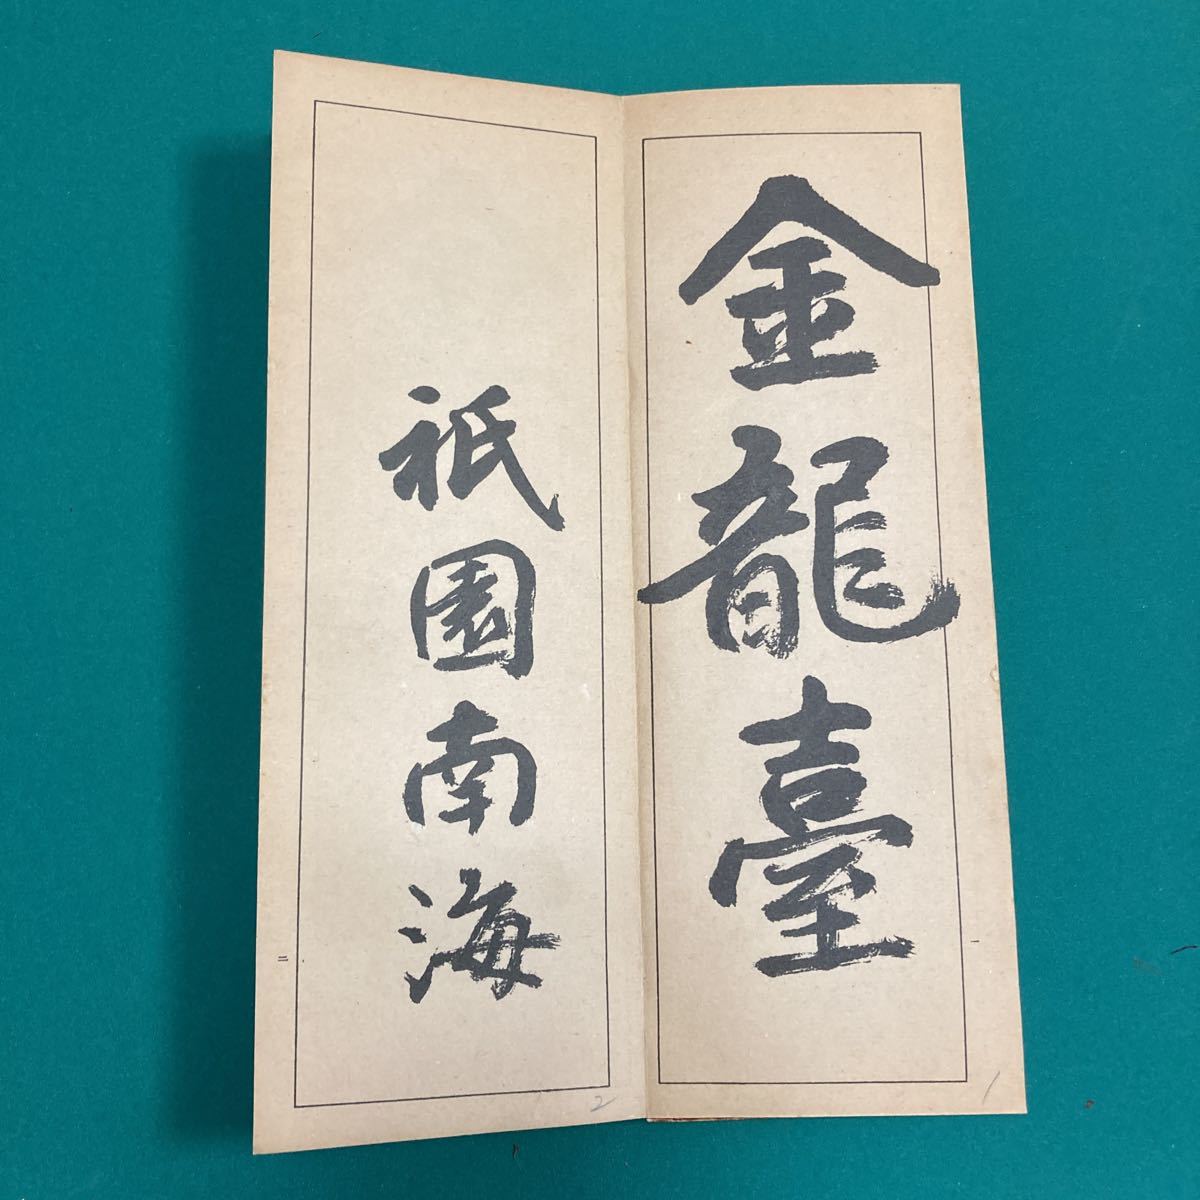 金龍臺
一
1
祇園南海
二
2